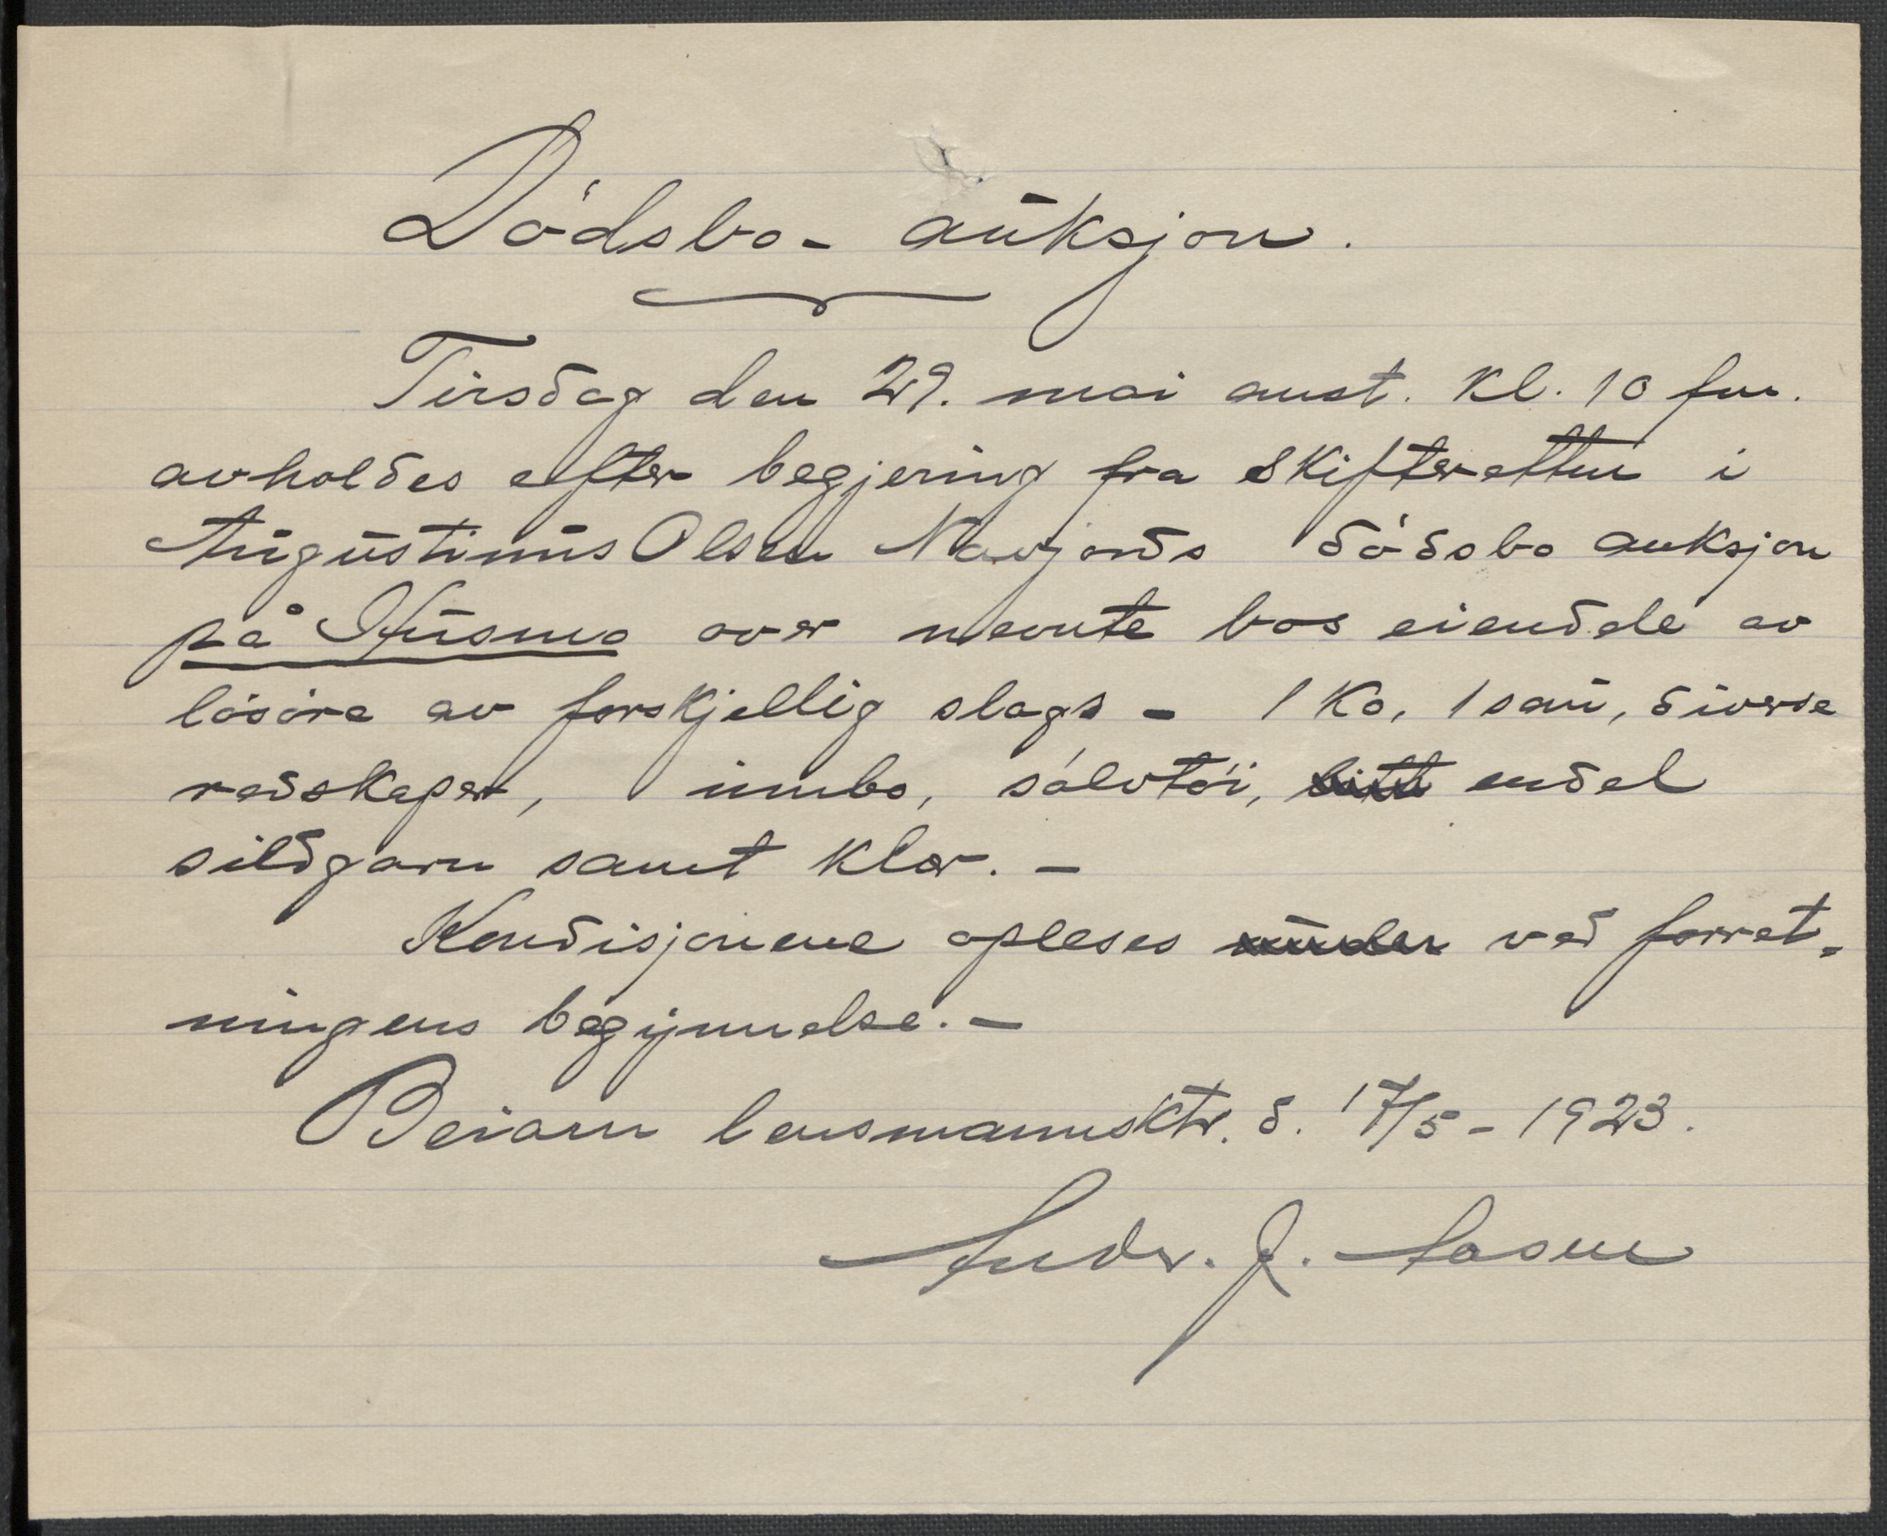 Dödsbo- auksjon.
Tirsdag den 29. mai anst. kl. 10 fm.
avholdes efter begjering fra skifteretten i
Augustinus Olsen Navjords dödsbo auksjon
på Husmo over nevnte bos eiendele av
lösöre av forskjellig slags - 1 ko, 1 sau, diverse
redskaper, innbo, sölvtöi, endel
sildgarn samt klær. -
Kondisjonene opleses under ved forret-
ningens begynnelse. -
Beiarn lensmannsktr. d. 17/5 - 1923.
Andr. J. Aasen